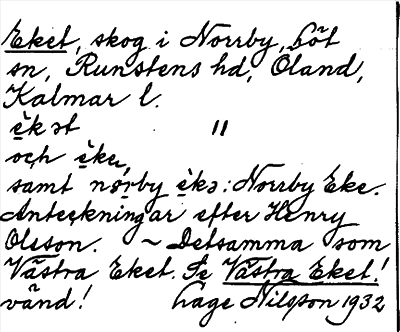 Eket, skog i Norrby, Löt
sn, Runstens hd, Öland,
Kalmar l.
èkət "
och èku,
samt norby èkə: Norrby Eke.
Anteckningar efter Henry
Olsson. ~ Detsamma som
Västra Eket. Se Västra Eket!
vänd! Lage Nilsson 1932